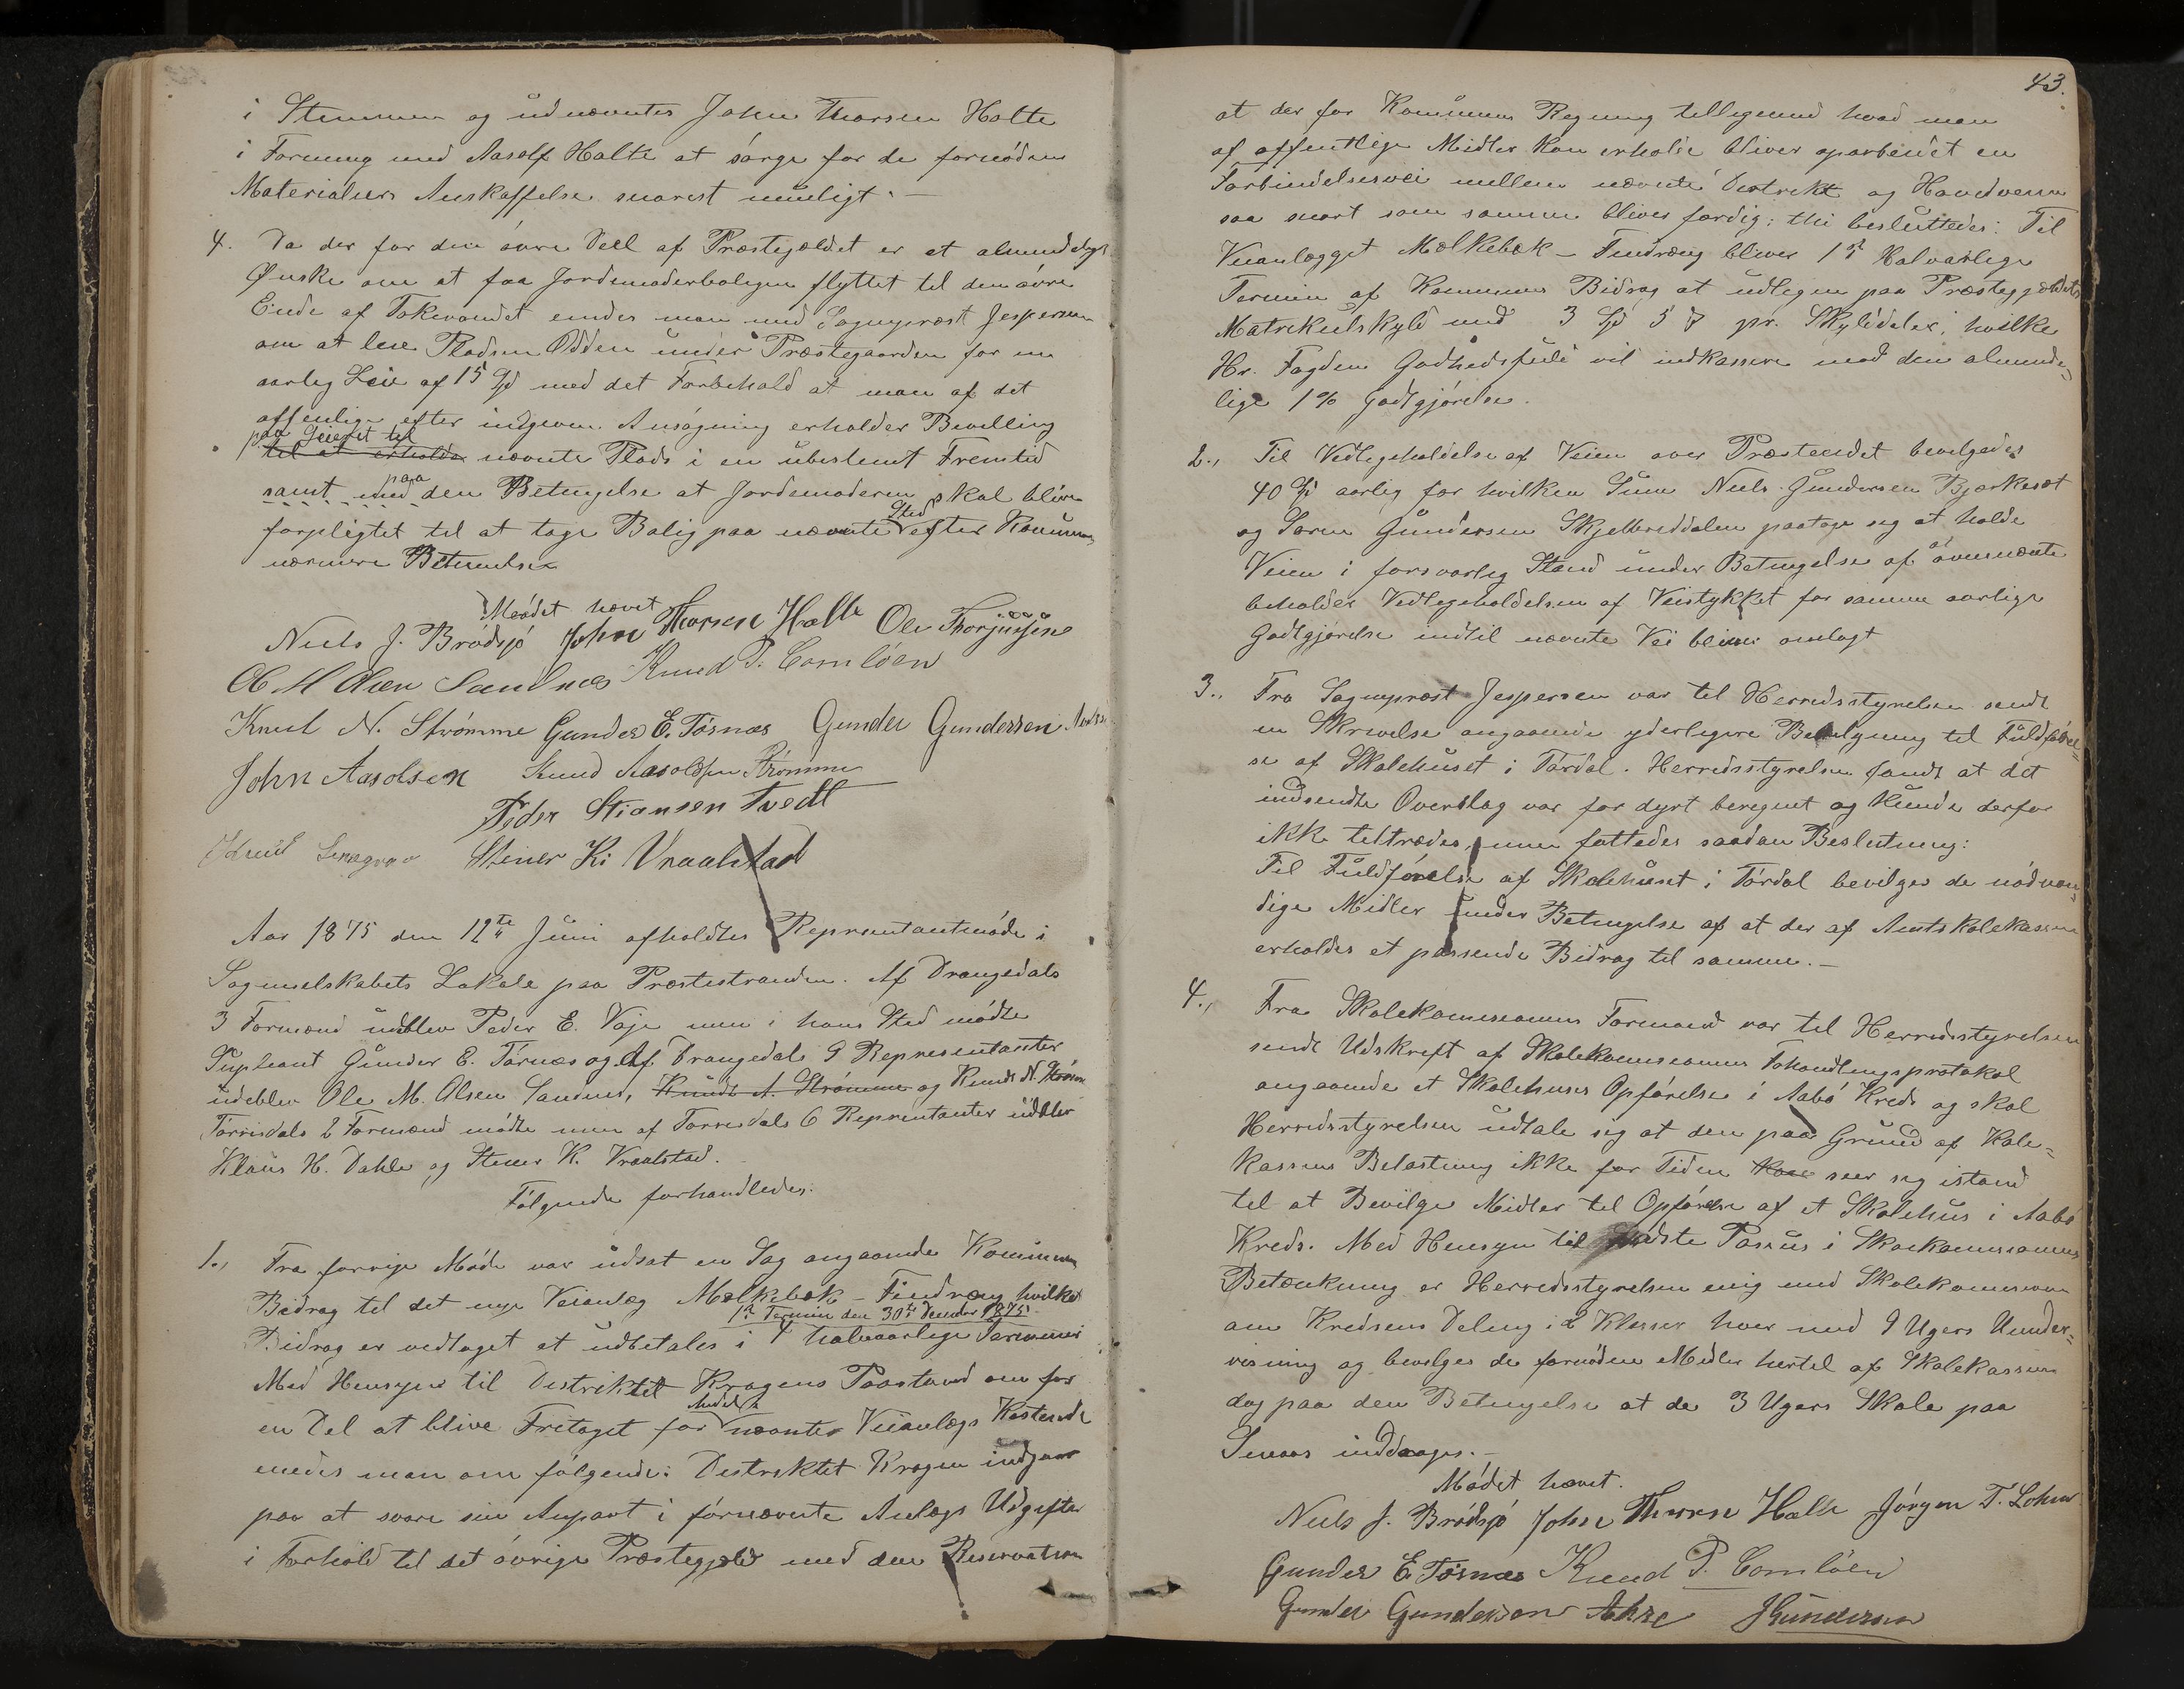 i Stemmen og udnævntes John Thorsen Holte
i Forening med Aasolf Holte at sørge for de fornødne
Materialiers Anskaffelse snarest muligt. —
4. Da der for den øvre Deel af Præstegjældet er et almindeligt
Ønske om at faa Jordemoderboligen flyttet til den øvre
Ende af Tokevandet enedes man med Sognepræst Jespersen
om at leie Pladsen Odden under Præstegaarden for en
aarlig Leie af 15 Spd med det Forbehold at man af det
offenlige efter indgiven Ansøgning erholder Bevilling
paa Leieret til
til at erholde nævnte Plads i en ubestemt Fremtid
samt med paa den Betingelse at Jordemoderen skal blive
forpligtet til at tage Bolig paa nævnte Sted efter Kommunens
nærmere Bestemmelse
Mødet hævet
Niels J. Brødsjø John Thorsen Holte Ole Thorjussen
Ole M Olsen Sandnes Knud P. Tomløen
Knut N. Strømme Gunder E. Tørnæs Gunder Gundersen
John Aasolsen Knud Aasoldsen Strømme
Peder Stiansen Tvedt
Steiner K. Vraalstad
Aar 1875 den 12te Juni afholdtes Reprentantmøde i
Sogneselskabets Lokale paa Præstestranden. Af Drangedals
3 Formænd udeblev Peder E. Voje men i hans Sted mødte
Supleant Gunder E. Tørnæs og Af Drangedals 9 Representanter
udeblev Ole M. Olsen Sandnes, Knudt A. Strømme og Knudt N. Strøm
Tørrisdals 2 Formænd mødte men af Torrisdals 6 Reprentanter udblev
Klaus H. Dahle og Stener K. Vraalstad.
Følgende forhandledes:
1., Fra forrige Møde var udsat en Sag angaaende Kommunens
Bidrag til det nye Veianlæg Mælkebæk – Findræng hvilket
1ste Termin den 30te December 1875
Bidrag er vedtaget at udbetales i 4 halvaarlige Terminer
Med Hensyn til Destriktet Kragens Paastand om for
en Del at blive Fritaget for nævnte Veianlægs Kostende
enedes man om følgende: Destriktet Kragen indgaar
paa at svare sin Anpart i førnævnte Anlægs Udgifter
i Forhold til det øvrige Præstegjeld med den Reservation
43.
at der for Kommunens Regning tilligemed hvad man
af offentlige Midler kan erholde bliver oparbeidet en
Forbindelsesvei mellem nævnte Destrikt og Hovedveien
saa snart som samme blives færdig; thi besluttedes: Til
Veianlægget Mælkebæk – Findræng bliver 1ste Halvaarlige
Termin af Kommunens Bidrag at udlignes paa Præstegjældets
Matrikulskyld med 3 Spd 5 ß pr. Skylddaler, hvilke
Hr. Fogden Godhedsfuld vil indkassere mod den alminde-
lige 1% Godtgjørelse.
2., Til Vedligeholdelse af Veien over Præsteeidet bevilgedes
40 Spd aarlig for hvilken Sum Niels Gundersen Bjørkeset
og Søren Gundersen Skjelbreddalen paatoge sig at holde
Veien i forsvarlig Stand under Betingelse af at ovennævnte
beholder Vedligeholdelsen af Veistykket for samme aarlige
Godtgjørelse indtil nævnte Vei bliver omlagt
3., Fra Sognepræst Jespersen var til Herredsstyrelsen sendt
en Skrivelse angaaende yderligere Bevilgning til Fuldførel-
se af Skolehuset i Tørdal. Herredsstyrelsen fandt at det
indsendte Overslag var for dyrt beregnet og kunde derfor
ikke tiltrædes, men fattedes saadan Beslutning:
Til Fuldførelse af Skolehuset i Tørdal bevilges de nødven-
dige Midler under Betingelse af at der af Amtsskolekassen
erholdes et passende Bidrag til samme. —
4., Fra Skolekommisionens Formand var til Herredsstyrelsen
sendt Udskrift af Skolekommisionens Fohandlingsprotokol
angaaende et Skolehuses Opførelse i Aabø Kreds og skal
Herredsstyrelsen udtale sig at den paa Grund af Kole-
kassens Belastning ikke for Tiden kan seer sig istand
til at Bevilge Midler til Opførelse af et Skolehus i Aabø
Kreds. Med Hensyn til sidste Passus i Skolekommisionens
Betænkning er Herredsstyrelsen enig med Skolekommisionen
om Kredsens Deling i 2 Klasser hver med 9 Ugers Under-
visning og bevilges de fornødne Midler hertil af Skolekassen
dog paa den Betingelse at de 3 Ugers Skole paa
inddrages. —
Mødet hævet.
Niels J. Brødsjø John Thorsen Holte Jørgen T. Lohne
Gunder E. Tørnæs Knud P. Tomløen
Gunder Gundersen JGundersen